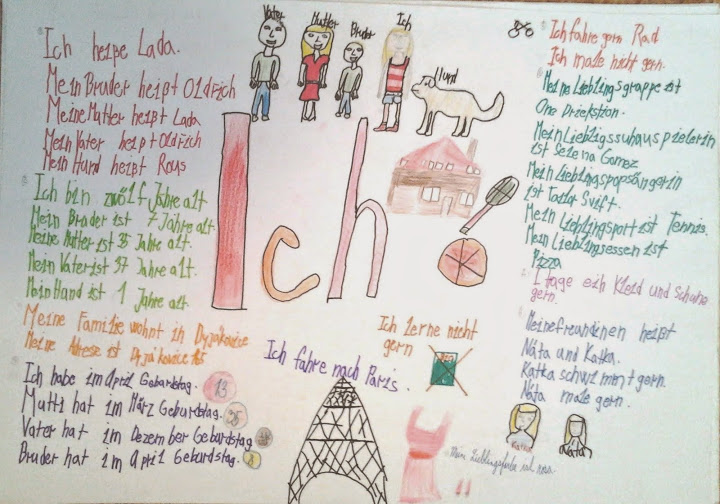 Ich heiße Lada.
Mein Bruder heißt Oldřich
Meine Mutter heißt Lada
Mein Vater heißt Oldřich
Mein Hund heißt Rous
Ich bin zwölf Jahre alt
Mein Bruder ist 7 Jahre alt.
Meine Mutter ist 35 Jahre alt.
Mein Vater ist 37 Jahre alt.
Mein Hund ist 1 Jahre alt.
Meine Familie wohnt in Dyjákovice
Meine Adrese ist Dyjákovice
Ich habe im April Geburdstag. 13
Mutti hat im März Geburdstag. 25
Vater hat im Dezember Geburdstag
Bruder hat im April Geburdstag.
Vater
Mutter
Bruder
Ich
Hund
Ich
Ich lerne nicht
gern
Ich fahre nach Paris.
Mein Lieblingsfarbe ist rosa.
Ich fahre gern Rad
Ich male nicht gern.
Meine Lieblingsgruppe ist
One Driekstion.
Mein Liebligssuhauspielerin
ist Selena Gomez
Mein Lieblingspopsängerin
ist Tailor Svift.
Mein Lieblingsport ist Tennis.
Mein Lieblingsessen ist
Pizza
I tage ein Kleid und Schuhe
gern.
Meine freundinen heißt
Náta und Katka.
Katka schwimmt gern.
Náta male gern.
Katka
Náta